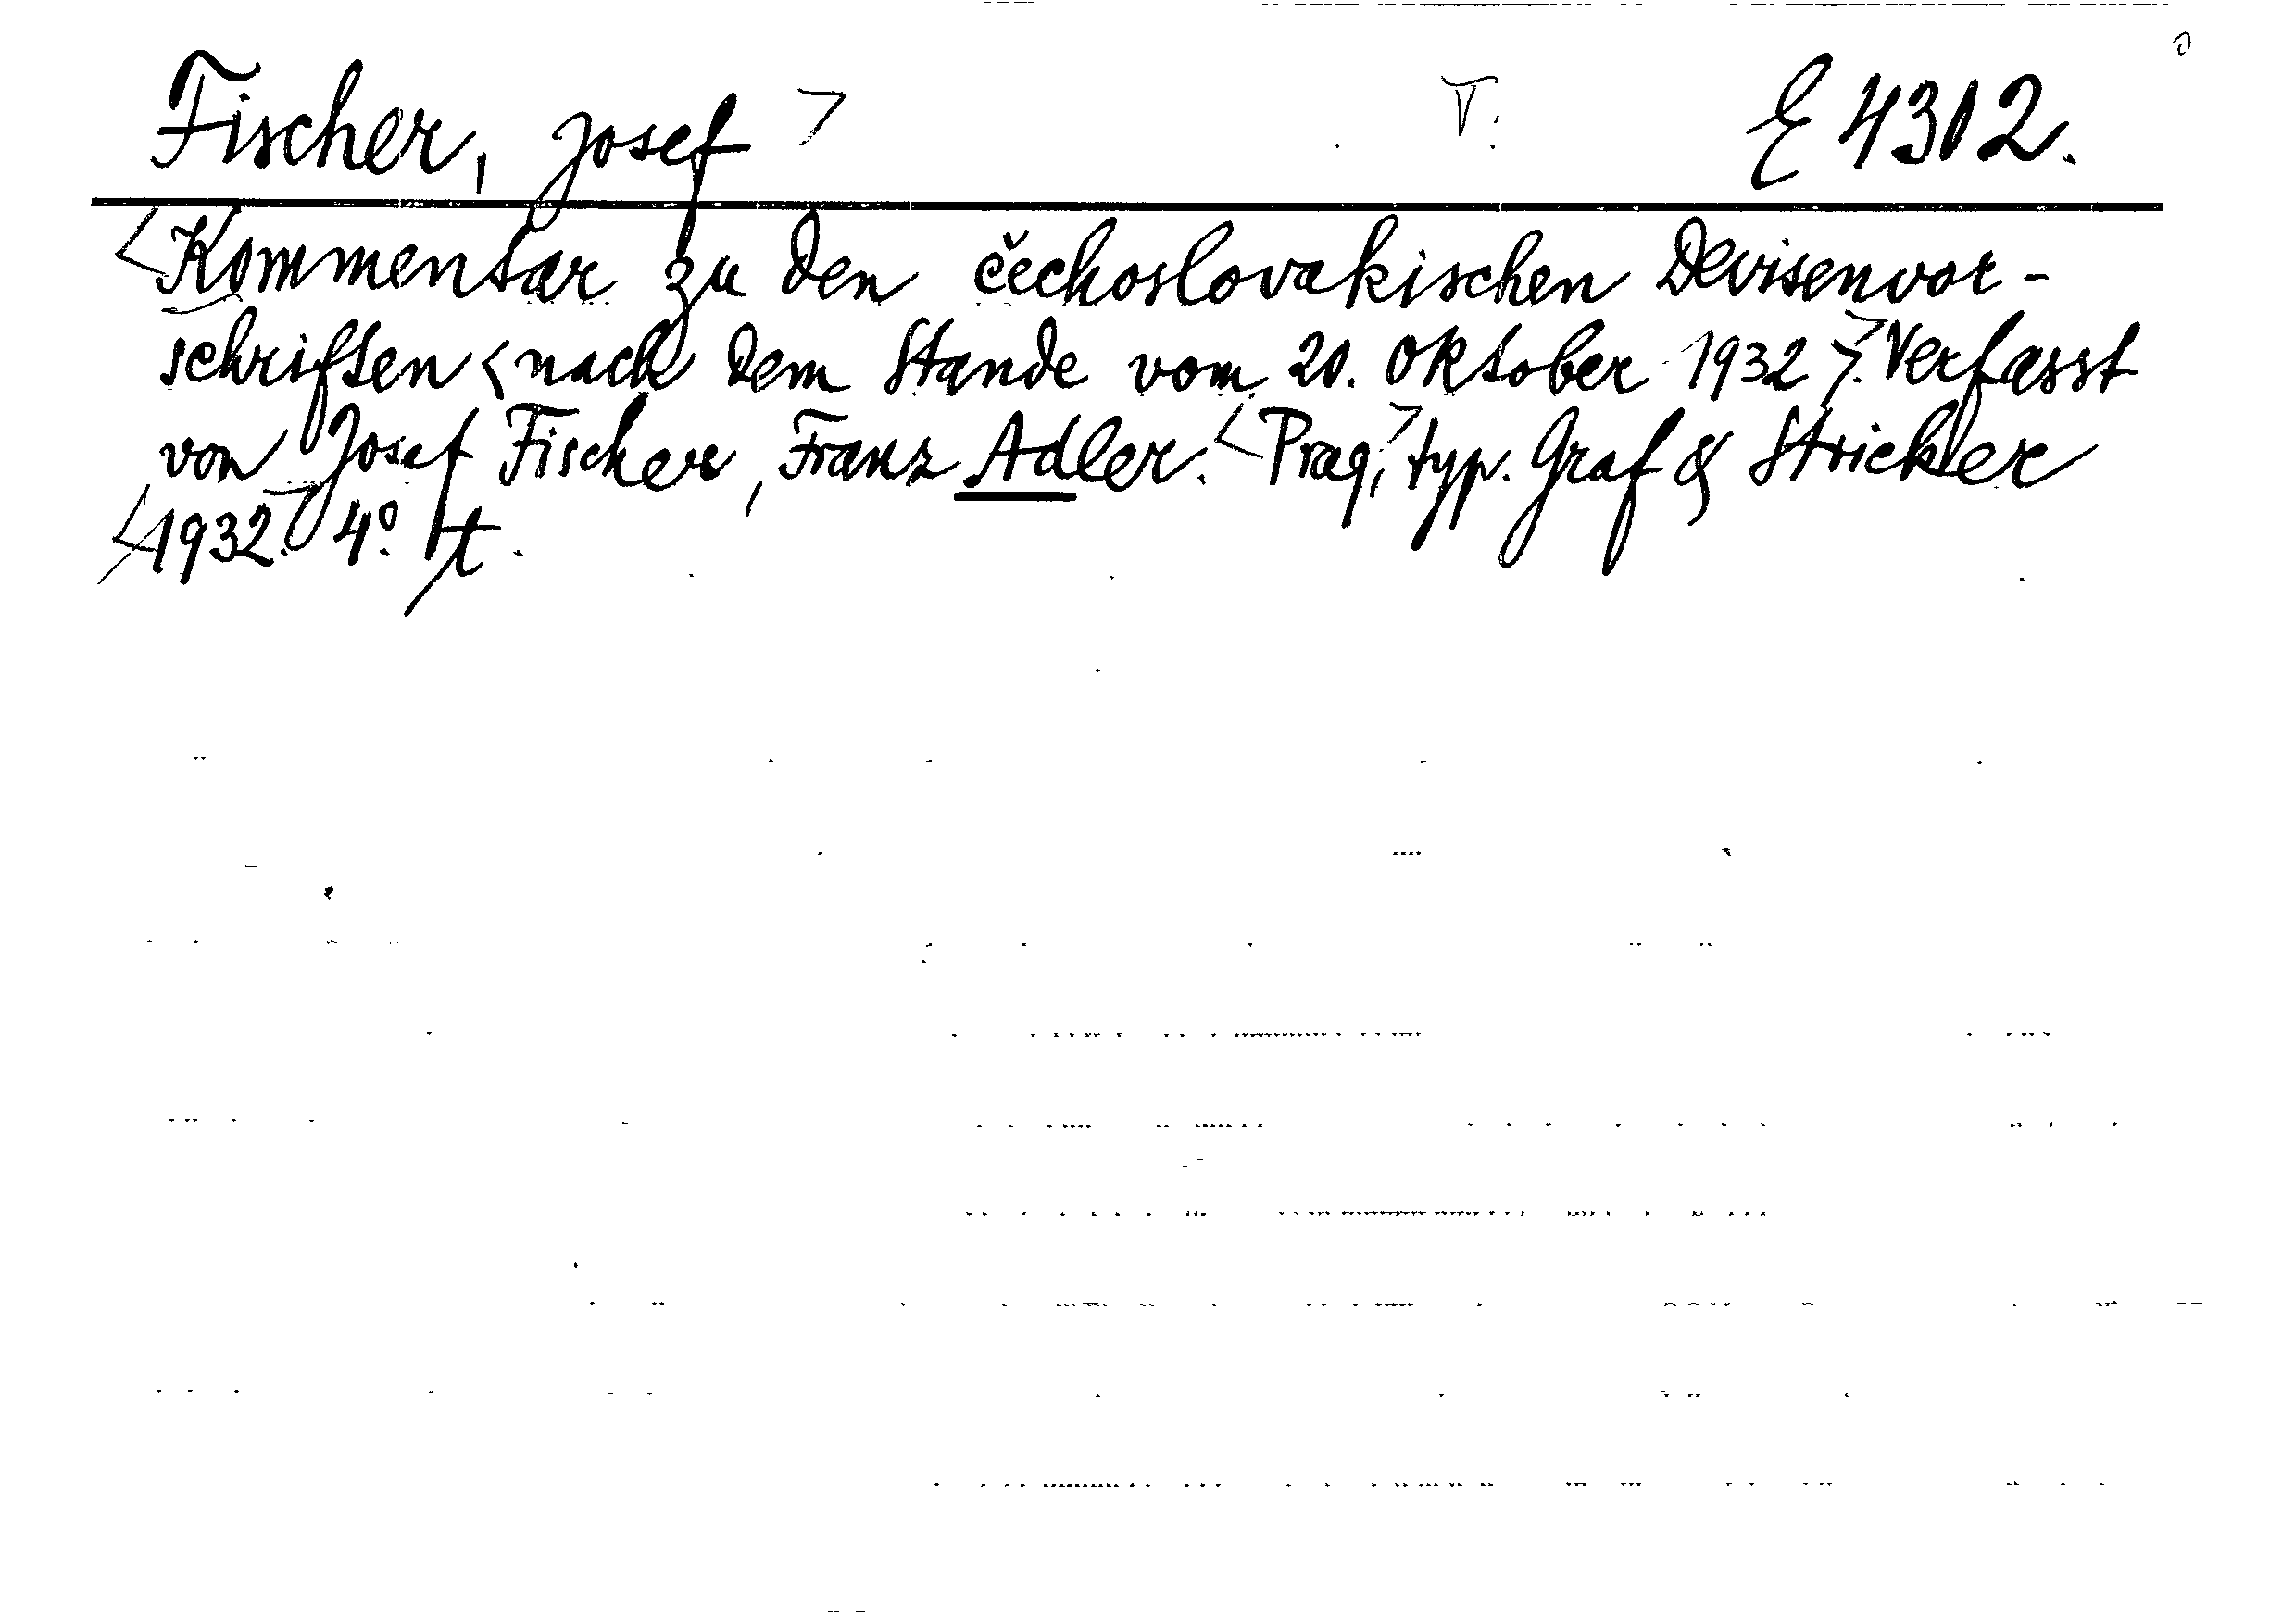 Fischer, Josef > T. E 4312.
<Kommentar zu den čechoslovakischen Devisenvor-
schriften <nach dem Stande vom 20. Oktober 1932>. Verfasst
von Josef Fischer, Franz Adler. <Prag,> typ. Graf & Strickler
<1932.> 4° t.